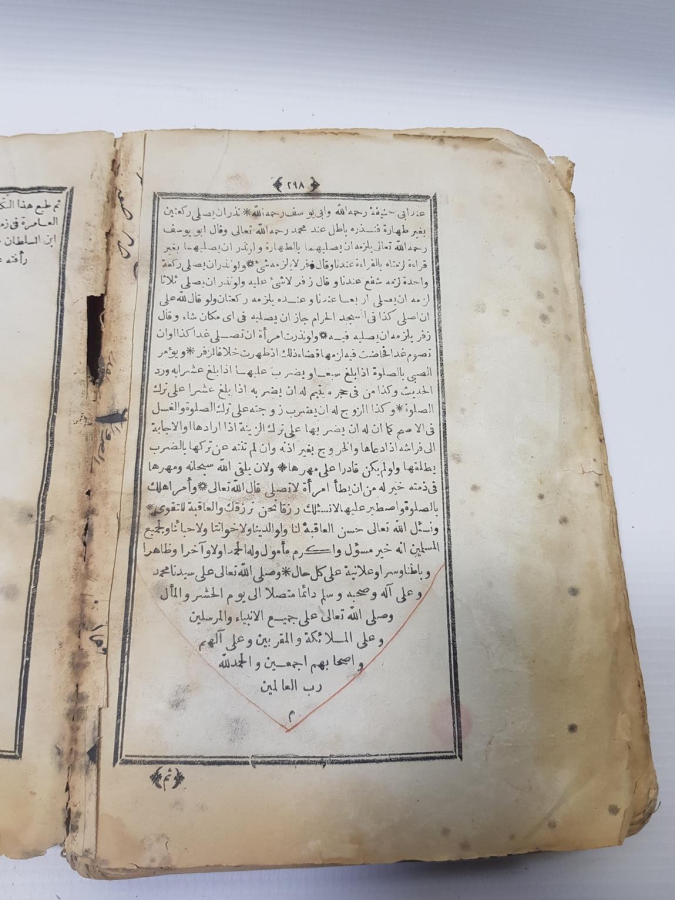 ﴿٢٩٨﴾
عند ابى حنيفة رحمه الله وابى يوسف رحمه الله * نذر ان يصلى ركعتين
بغير طهارة فنذره باطل عند محمد رحمه الله تعالى وقال ابو يوسف
رحمه الله تعالى يلزمه ان يصليهما بالطهارة وان نذر ان يصليهما بغير
قراءة لزمتاه بالقراءة عندنا وقال زفر لا يلزمه شئ * ولو نذر ان يصلى ركعة
واحدة لزمه شفع عندنا وقال زفر لا شئ عليه ولو نذر ان يصلى ثلاثا
لزمه ان يصلى اربعا عندنا وعنده يلزمه ركعتان ولو قال لله على
ان اصلى كذا فى المسجد الحرام جاز ان يصليه فى اى مكان شاء وقال
زفر يلزمه ان يصليه فيه * ولو نذرت امرأة ان تصلى غدا كذا او ان
تصوم غدا فحاضت فيه لزمها قضاء ذلك اذا طهرت خلافا لزفر * ويؤمر
الصبى بالصلوة اذا بلغ سبعا ويضرب عليها اذا بلغ عشرا به ورد
الحديث وكذا من فى حجره يتيم له ان يضربه اذا بلغ عشرا على ترك
الصلوة * وكذا الزوج له ان يضرب زوجته على ترك الصلوة والغسل
فى الاصح كما ان له ان يضربها على ترك الزينة اذا ارادها والاجابة
الى فراشه اذا دعاها والخروج بغير اذنه وان لم تنته عن تركها بالضرب
يطلقها ولو لم يكن قادرا على مهرها * ولان يلقى الله سبحانه ومهرها
فى ذمته خير له من ان يطأ امرأة لا تصلى قال الله تعالى * وأمر اهلك
بالصلوة واصطبر عليها لا نسئلك رزقا نحن نرزقك والعاقبة للتقوى *
ونسئل الله تعالى حسن العاقبة لنا ولوالدينا ولاخواننا ولاحبائنا ولجميع
المسلمين انه خير مسؤل واكرم مأمول وله الحمد اولا وآخرا وظاهرا
وباطنا وسرا وعلانية على كل حال * وصلى الله تعالى على سيدنا محمد
وعلى آله وصحبه وسلم دائما متصلا الى يوم الحشر والمآل
وصلى الله تعالى على جميع الانبياء والمرسلين
وعلى الملائكة والمقربين وعلى آلهم
واصحابهم اجمعين والحمد لله
رب العالمين
م
﴿تم﴾
تم طبع هذا
العامرة فى
ابن السلطان